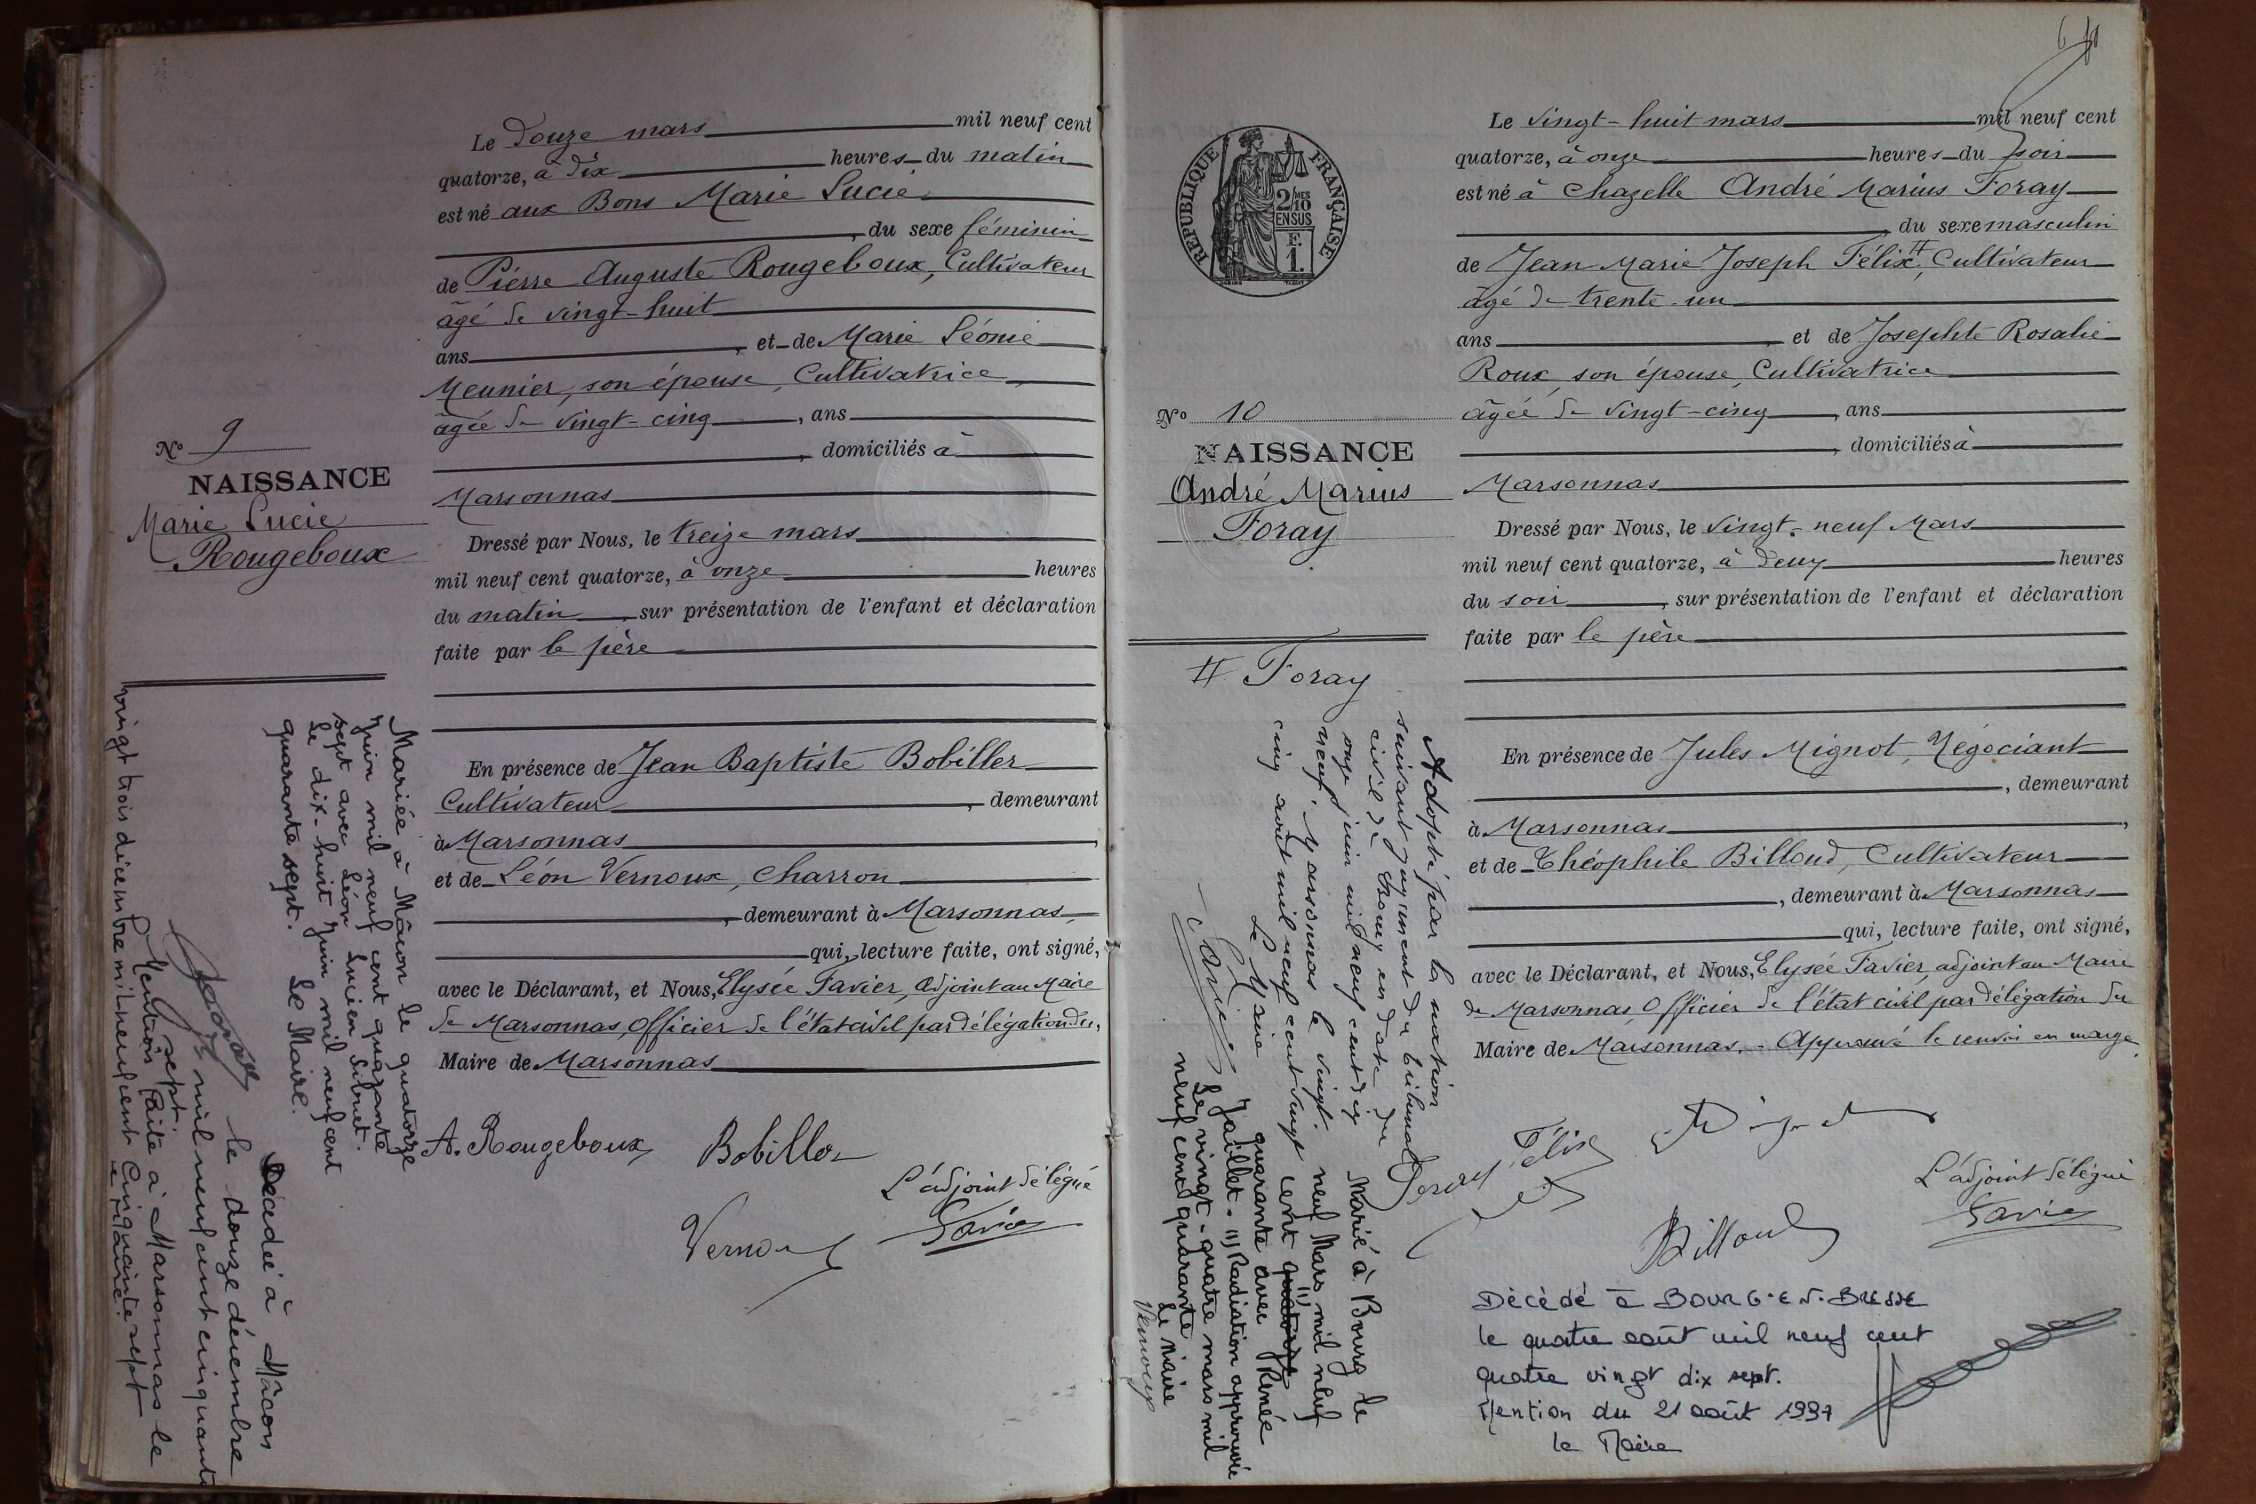 Le Douze mars mil neuf cent
quatorze, à Dix heures du matin
est né aux Bons Marie Lucie
, du sexe féminin
de Pierre Auguste Rougeboux, Cultivateur
âgé de vingt-huit
ans , et de Marie Léonie
Meunier, son épouse, Cultivatrice
âgée de vingt-cinq , ans
, domiciliés à
Marsonnas
Dressé par Nous, le treize mars
mil neuf cent quatorze, à onze heures
du matin , sur présentation de l'enfant et déclaration
faite par le père
En présence de Jean Baptiste Bobiller
Cultivateur , demeurant
à Marsonnas
et de Léon Vernoux, Charron
, demeurant à Marsonnas,
qui, lecture faite, ont signé,
avec le Déclarant, et Nous, Elysée Favier, adjoint au Maire
de Marsonnas, Officier de l'état civil par délégation du,
Maire de Marsonnas
A. Rougeboux Bobiller
L'adjoint délégué
Vernoux Favier
No 9
NAISSANCE
Marie Lucie
Rougeboux
Mariée à Mâcon le quatorze
juin mil neuf cent quarante
sept avec Léon Lucien
Le dix-huit juin mil neuf cent
quarante sept. Le Maire.
Décédé à Mâcon
le douze décembre
mil neuf cent cinquante
sept.
Mention faite à Marsonnas le
vingt trois décembre mil neuf cent cinquante sept
Le Maire.
No 10
NAISSANCE
André Marius
Foray
REPUBLIQUE FRANÇAISE
2/10
EN SUS
F.
1.
# Foray
Adopté par la nation
suivant jugement du tribunal
civil de Bourg en date du
onze juin mil neuf cent dix
neuf. Marsonnas le vingt
cinq août mil neuf cent vingt
Le Maire
Favier
Marié à Bourg le
neuf Mars mil neuf
cent quatorze (1)
quarante avec Renée
Jaillet. (1) Radiation approuvée
Le vingt-quatre mars mil
neuf cent quarante
Le Maire
Vernoux
Le vingt-huit mars mil neuf cent
quatorze, à onze heures du soir
est né à Chazelle André Marius Foray
, du sexe masculin
de Jean Marie Joseph Félix #, Cultivateur
âgé de trente-un
ans , et de Josephte Rosalie
Roux, son épouse, Cultivatrice
âgée de vingt-cinq , ans
, domiciliés à
Marsonnas
Dressé par Nous, le vingt-neuf Mars
mil neuf cent quatorze, à deux heures
du soir , sur présentation de l'enfant et déclaration
faite par le père
En présence de Jules Mignot, Négociant
, demeurant
à Marsonnas
et de Théophile Billoud, Cultivateur
, demeurant à Marsonnas
qui, lecture faite, ont signé,
avec le Déclarant, et Nous, Elysée Favier, adjoint au Maire
de Marsonnas, Officier de l'état civil par délégation du
Maire de Marsonnas. - Approuvé le renvoi en marge.
Foray Félix Mignot
L'adjoint délégué
Billoud Favier
Décédé à BOURG-EN-BRESSE
le quatre août mil neuf cent
quatre vingt dix sept.
Mention du 21 août 1997
le Maire